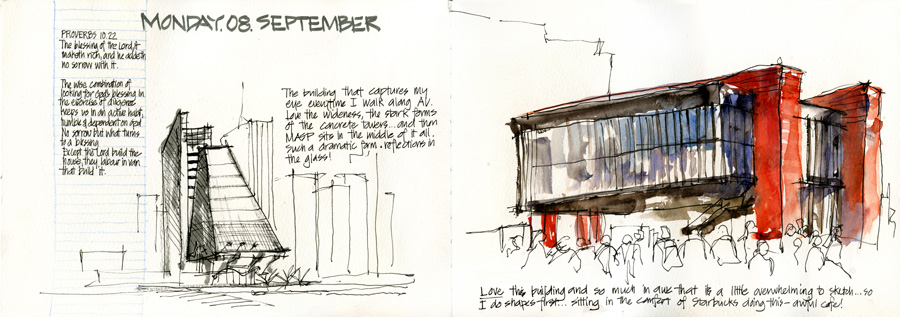 MONDAY. 08. SEPTEMBER
PROVERBS 10.22
The blessing of the Lord, it
maketh rich, and he addeth
no sorrow with it.
The wise combination of
looking for God's blessing in
the exercise of diligence
keeps us in an active habit,
humble & dependent on God
No sorrow but what turns
to a blessing.
Except the Lord build the
house, they labour in vain
that build it.
The building that captures my
eye everytime I walk along AV.
Love the wideness, the stark forms
of the concrete towers... and then
MASP sits in the middle of it all.
such a dramatic form. reflections in
the glass!
Love this building and so much in awe that its a little overwhelming to sketch... so
I do shapes first... sitting in the comfort of Starbucks doing this - awful cafe!